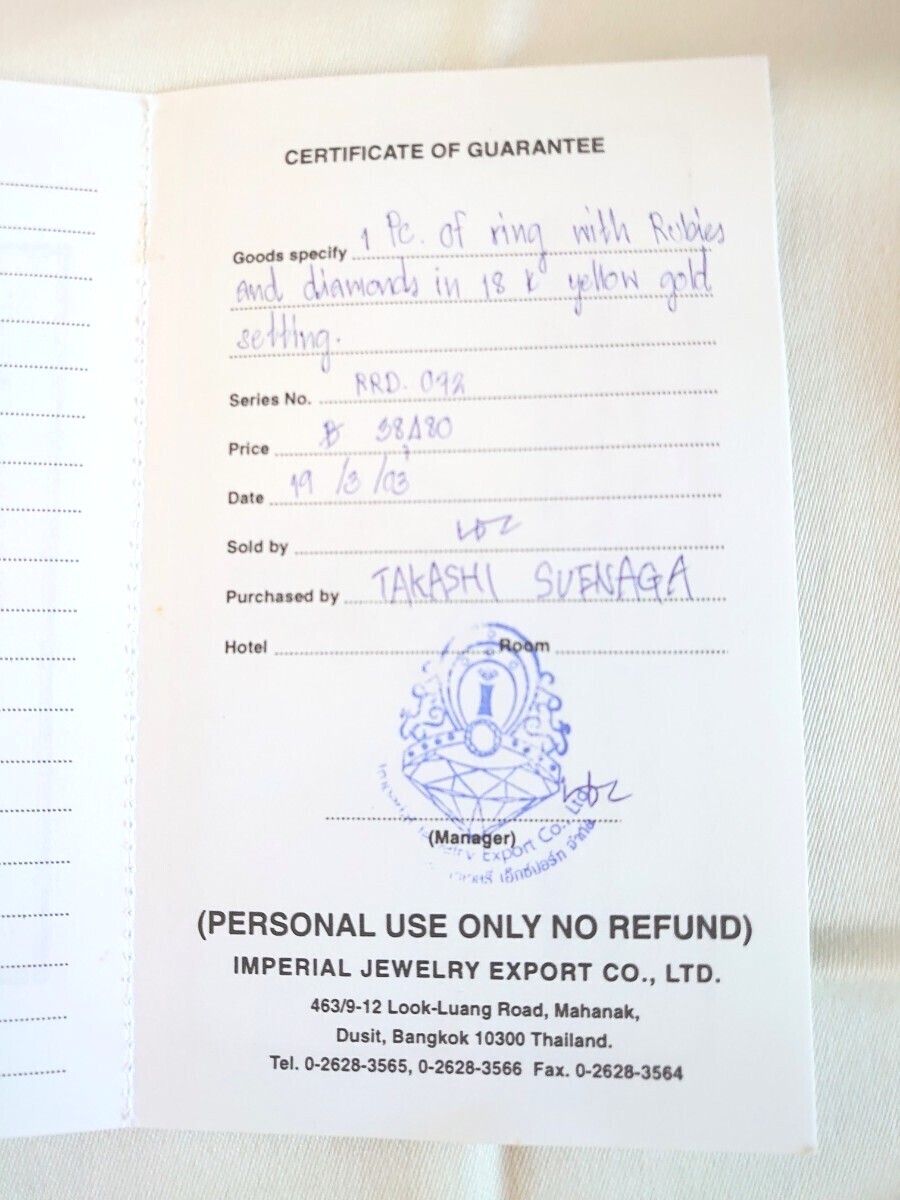 CERTIFICATE OF GUARANTEE
Goods specify 1 Pc. of ring with Rubies
and diamonds in 18 K yellow gold
setting.
Series No. RRD. 092
Price ฿
Date 19/3/03
Sold by
Purchased by TAKASHI SUENAGA
Hotel Room
I
Jewelry Export Co., Ltd.
เอ็กซ์ปอร์ท จำกัด
(Manager)
(PERSONAL USE ONLY NO REFUND)
IMPERIAL JEWELRY EXPORT CO., LTD.
463/9-12 Look-Luang Road, Mahanak,
Dusit, Bangkok 10300 Thailand.
Tel. 0-2628-3565, 0-2628-3566 Fax. 0-2628-3564